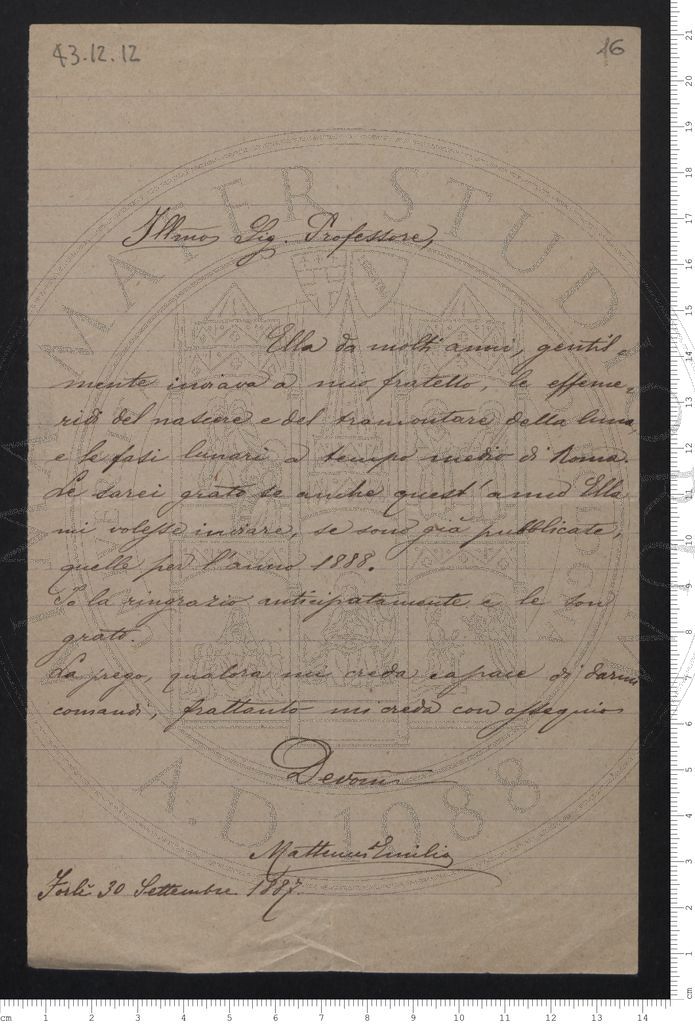 43.12.12
16
Illmo Sig. Professore,
Ella da molti anni, gentil-
mente inviava a mio fratello, le effeme-
ridi del nascere e del tramontare della luna,
e le fasi lunari a tempo medio di Roma.
Le sarei grato se anche quest'anno Ella
mi volesse inviare, se sono già pubblicate,
quelle per l'anno 1888.
Io la ringrazio anticipatamente e le son
grato.
La prego, qualora mi creda capace di darmi
comandi, frattanto mi creda con ossequio
Devom
Emilio
Forlì 30 Settembre 1887.
ALMA MATER STUDIORUM
A.D. 1088